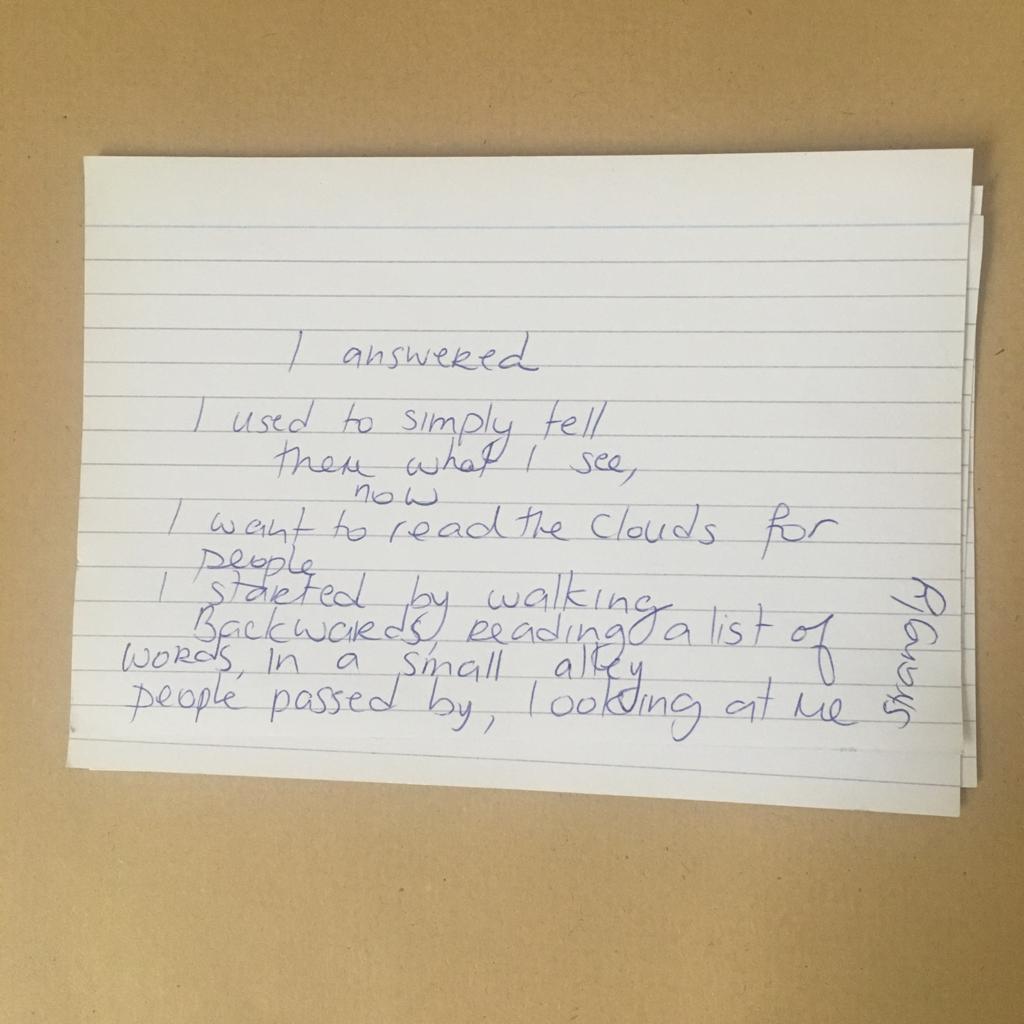 I answered
I used to simply tell
them what I see,
now
I want to read the clouds for
people
I started by walking
Backwards, reading a list of
words, in a small alley
people passed by, looking at me